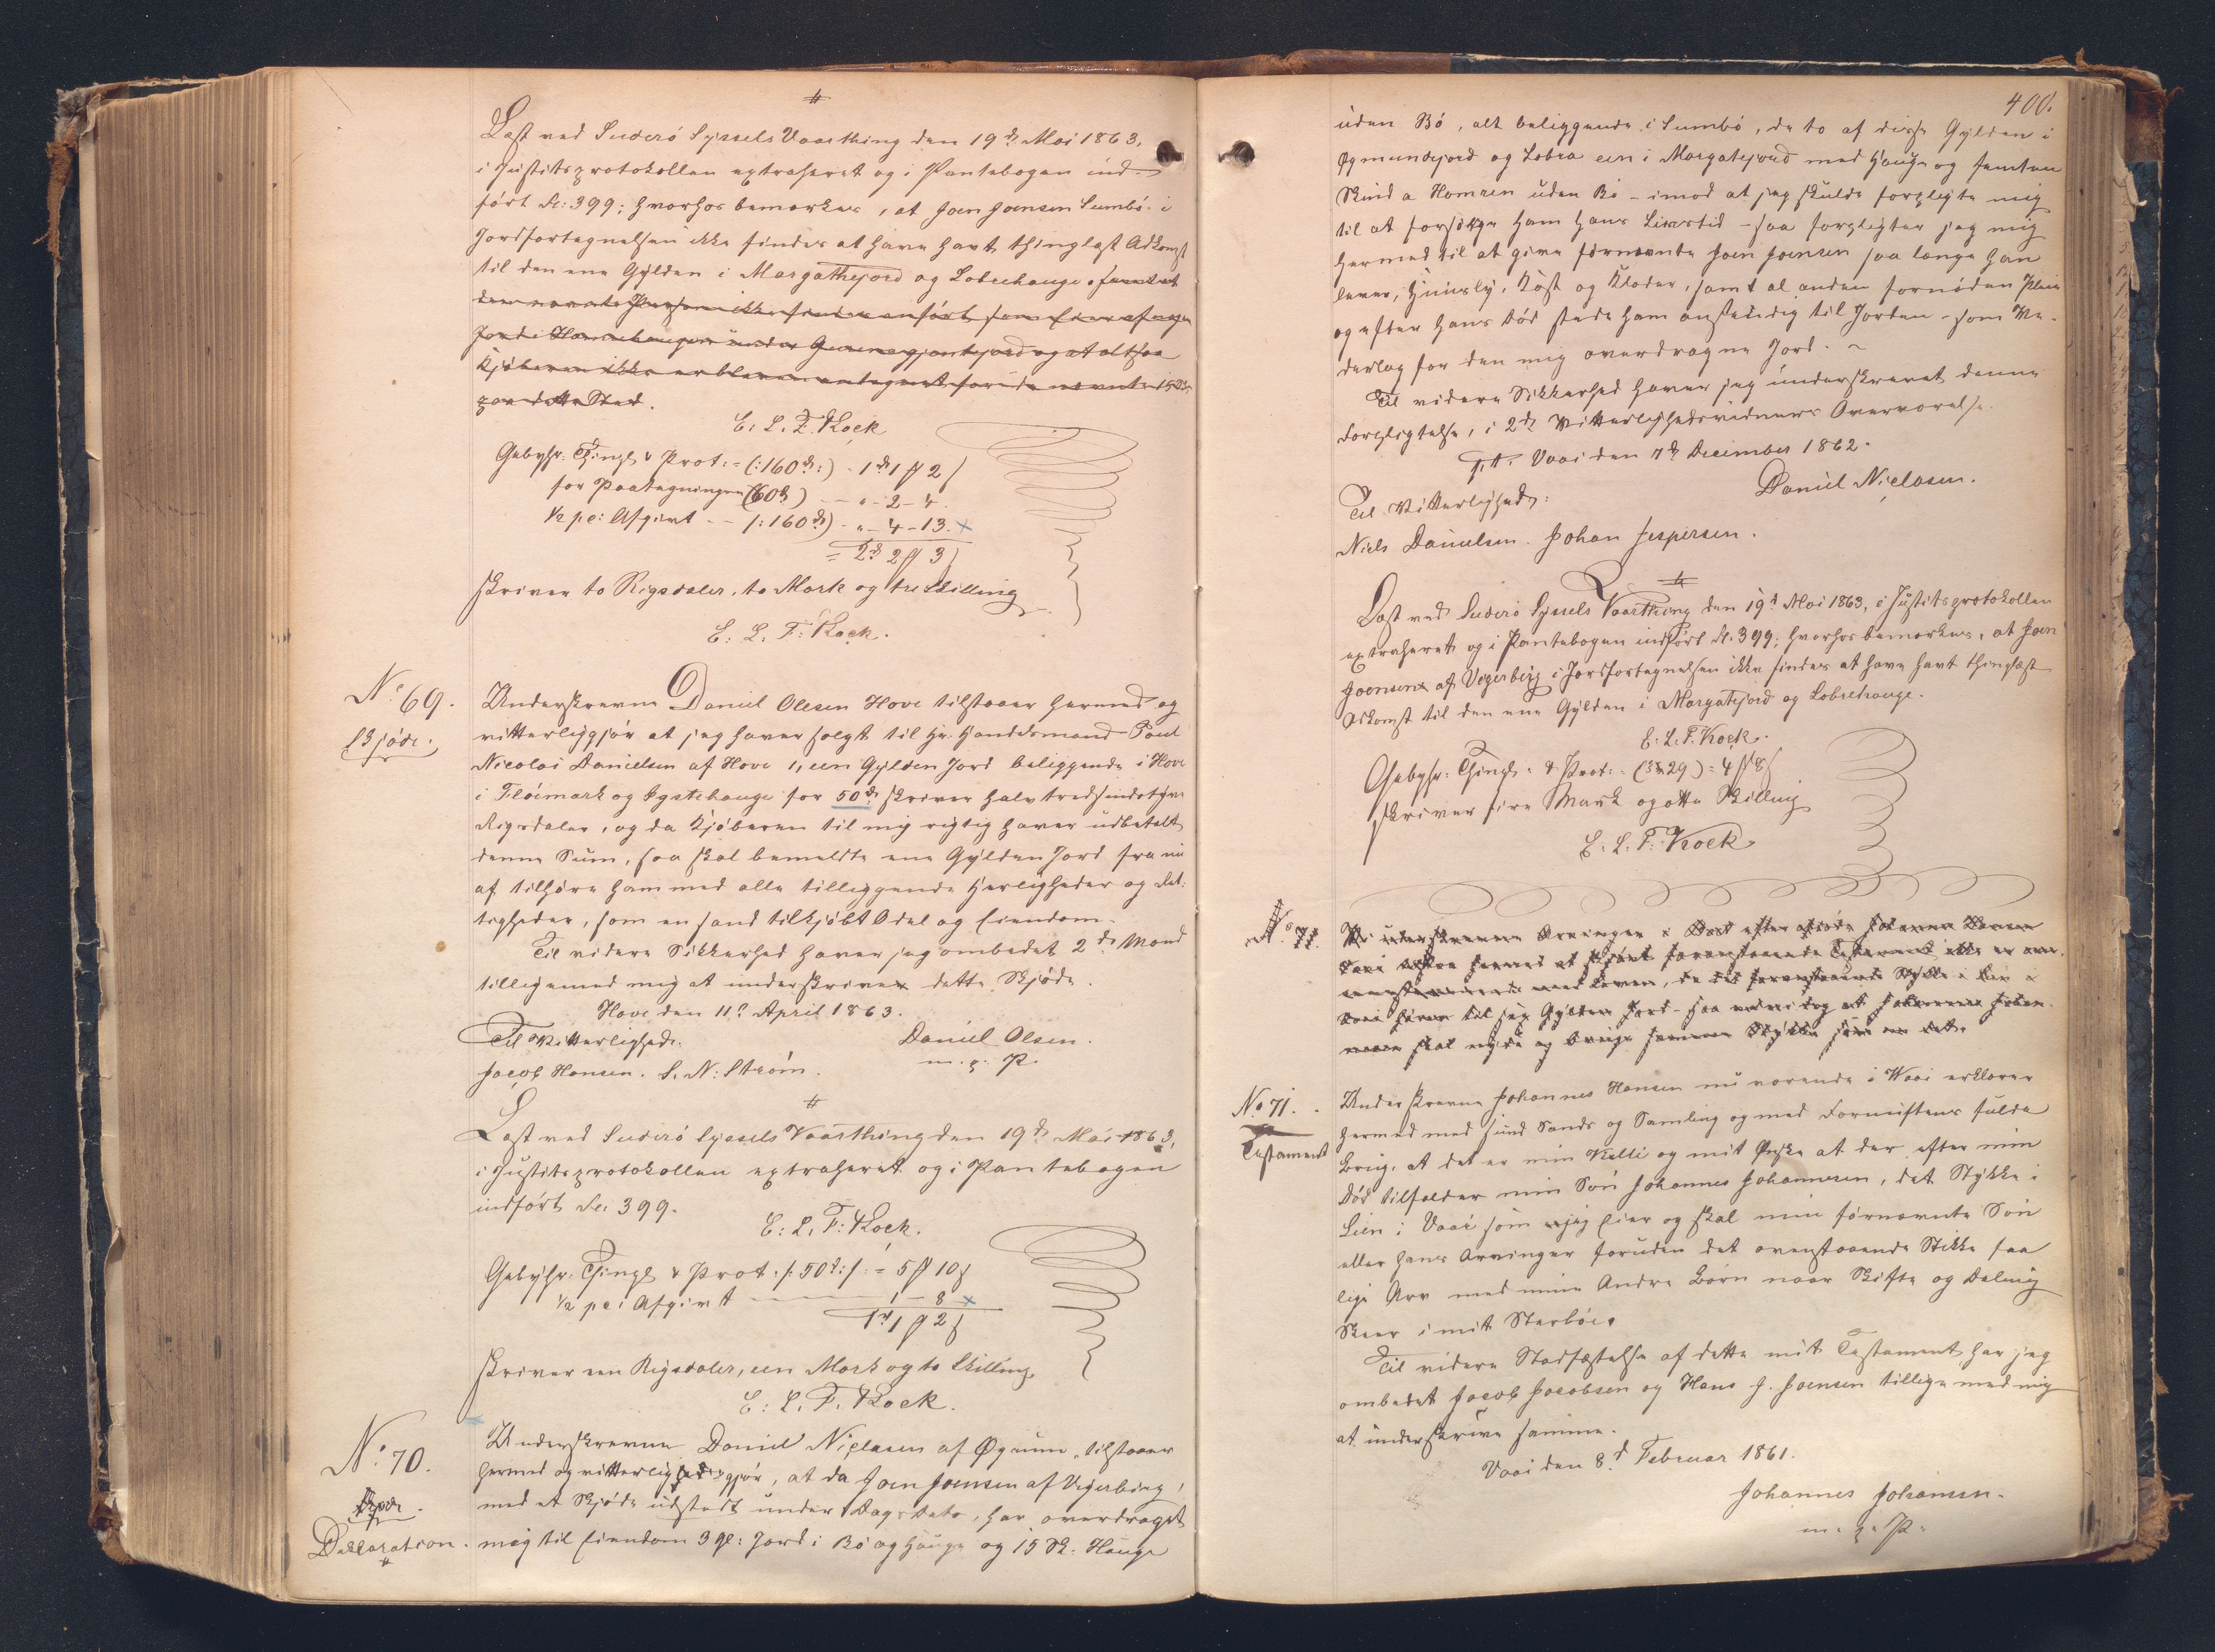 #
Læst ved Suderó Syssels Vaarthing den 19 d: Mai 1863,
i Justitsprotokollen extraheret og i Pantebogen ind-
fört Fol: 399; hvorhos bemærkes, at Joen Joensen Sumbö i
Jordfortegnelsen ikke findes at have havt thinglæst Adkomst
til den ene Gylden i Margathejord og Lobrehauge, samt at
den nævnte Person ikke findes anført som Eier af nogen
Jord i Hamrehaugen under og at altsaa
Kjöberen ikke er bleven antegnet for de nævnte 15 Sk:
paa dette Sted.
E. L. F. Kock
Gebyhr: Thingl. & Prot: = (:160 d:) - 1 d 1 # 2 s
for Paategningen (60 d) - - " - 2 - 4
½ pc: Afgivt - - (:160 d) - " - 4 - 13. x
= 2 d 2 # 3 s
skriver to Rigsdaler, to Mark og tre Skilling
E: L. F: Kock.
No: 69.
Skjöde.
Underskrevne Daniel Olesen Hove tilstaaer hermed og
vitterliggjör at jeg haver solgt til Hr. Handelsmand Poul
Nicolai Danielsen af Hove 1, een Gylden Jord beliggende i Hove
i Flóimark og Systehauge for 50 d: skriver halvtredsindstyve
Rigsdaler, og da Kjöberen til mig rigtig haver udbetalt
denne Sum, saa skal bemeldte ene Gylden Jord fra nu
af tilhöre ham med alle tilliggende Herligheder og Ret-
tigheder, som en sand tilkjöbt Odel og Eiendom.
Til videre Sikkerhed haver jeg ombedet 2 de Mænd
tilligemed mig at underskrive dette Skjöde.
Hove den 11te April 1863.
Til Vitterlighed: Daniel Olsen.
Jacob Hansen. S. N: Ström. m. p. P.
#
Læst ved Suderó Syssels Vaarthing den 19 d: Mai 1863,
i Justitsprotokollen extraheret og i Pantebogen
indfört Fol: 399.
E: L. F: Kock.
Gebyhr: Thingl & Prot. /: 50 d: / = 5 # 10 s
½ pc: Afgivt - - - - 1 - 8 x
1 d 1 # 2 s
skriver een Rigsdaler, een Mark og to Skilling
E: L. F. Kock.
No: 70.
Declaration.
Underskrevne Daniel Nielasen af Øgnum, tilstaaer
hermed og vitterligggjör, at da Joen Joensen af Vegerbierg,
med et Skjöde udstedt under Dags Dato, har overdraget
mig til Eiendom 3 Gl: Jord i Bó og Hauge og 15 Sk: Hauge
400.
uden Bó, alt beliggende i Sumbö, de to af disse Gylden i
Øgmundejord og Lobra een i Margatejord med Hauge og femten
Skind a Hamren uden Bó - imod at jeg skulde forpligte mig
til at forsörge ham hans Livstid - saa forpligter jeg mig
hermed til at give förnævnte Joen Joensen saa længe han
lever, Huusly, Kost og Klæder, samt al anden fornöden Pleie
og efter hans Död stede ham anstændig til Jorden - som Ve-
derlag for den mig overdragne Jord. ~
Til videre Sikkerhed haver jeg underskrevet denne
Forpligtelse, i 2 de Vitterlighedsvidners Overværelse.
p. t. Vaai den 7 d: December 1862.
Daniel Nielasen.
Til Vitterlighed:
Niels Danielsen. Johan Jespersen.
#
Læst ved Suderó Syssels Vaarthing den 19 d Mai 1863, i Justitsprotokollen
extraheret og i Pantebogen indfört Fol. 399; hvorhos bemærkes, at Joen
Joensen af Vegerbierg i Jordfortegnelsen ikke findes at have havt thinglæst
Adkomst til den ene Gylden i Margatejord og Lobrehauge.
E: L. F. Kock.
Gebyhr: Thingl: & Prot: - (29) = 4 # 8 s
skriver fire Mark og otte Skilling
E. L. F: Kock
No: 71.
Vi underskrevne Arvinger i Boet efter afdöde Johannes Hansen
Vaai tilstaa hermed at skjönt foranstaaende Testament ikke er over-
eensstemmende med Loven, da det foranstaaende Stykke i Lien i
Vaai hörer til Gylden Jord - saa ville vi dog at Johannes Johan-
nesen skal nyde og bruge samme Stykke som en Ret.
No 71.
Testament
Underskrevne Johannes Hansen nu værende i Waai erklærer
hermed med sund Sands og Samling og med Fornuftens fulde
Brug, at det er min Villie og mit Ønske at der efter min
Död tilfalder min Sön Johannes Johannesen, det Stykke i
Lien i Vaai som jeg Eier og skal min förnævnte Sön
eller hans Arvinger foruden det ovenstaaende Stikke faa
lige Arv med mine Andre Börn naar Skifte og Deling
Skeer i mit Sterböe.
Til videre Stadfæstelse af dette mit Testament har jeg
ombedet Jacob Jacobsen og Hans J. Joensen tillige med mig
at underskrive samme.
Vaai den 8 d Februar 1861.
Johannes Johansen.
m. p. P.